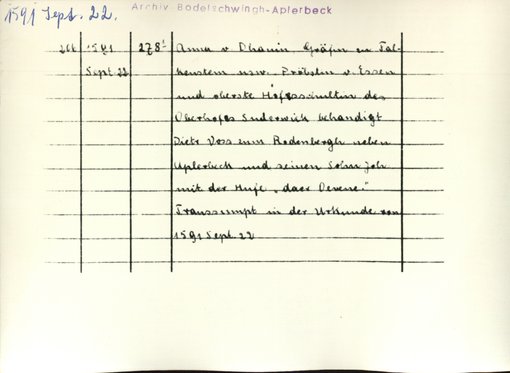 1591 Sept. 22.
Archiv-Bodelschwingh-Aplerbeck
266 1591 278¹ Anna v Dhaun, Gräfin zu Fal-
Sept 22 kenstein usw. Pröbstin v. Essen
und oberste Hofesschultin des
Oberhofes Suderwich behandigt
Dietr Voss zum Rodenbergh neben
Aplerbeck und seinen Sohn Joh
mit der Hufe „daer Oevene."
Transsumpt in der Urkunde von
1591 Sept. 22